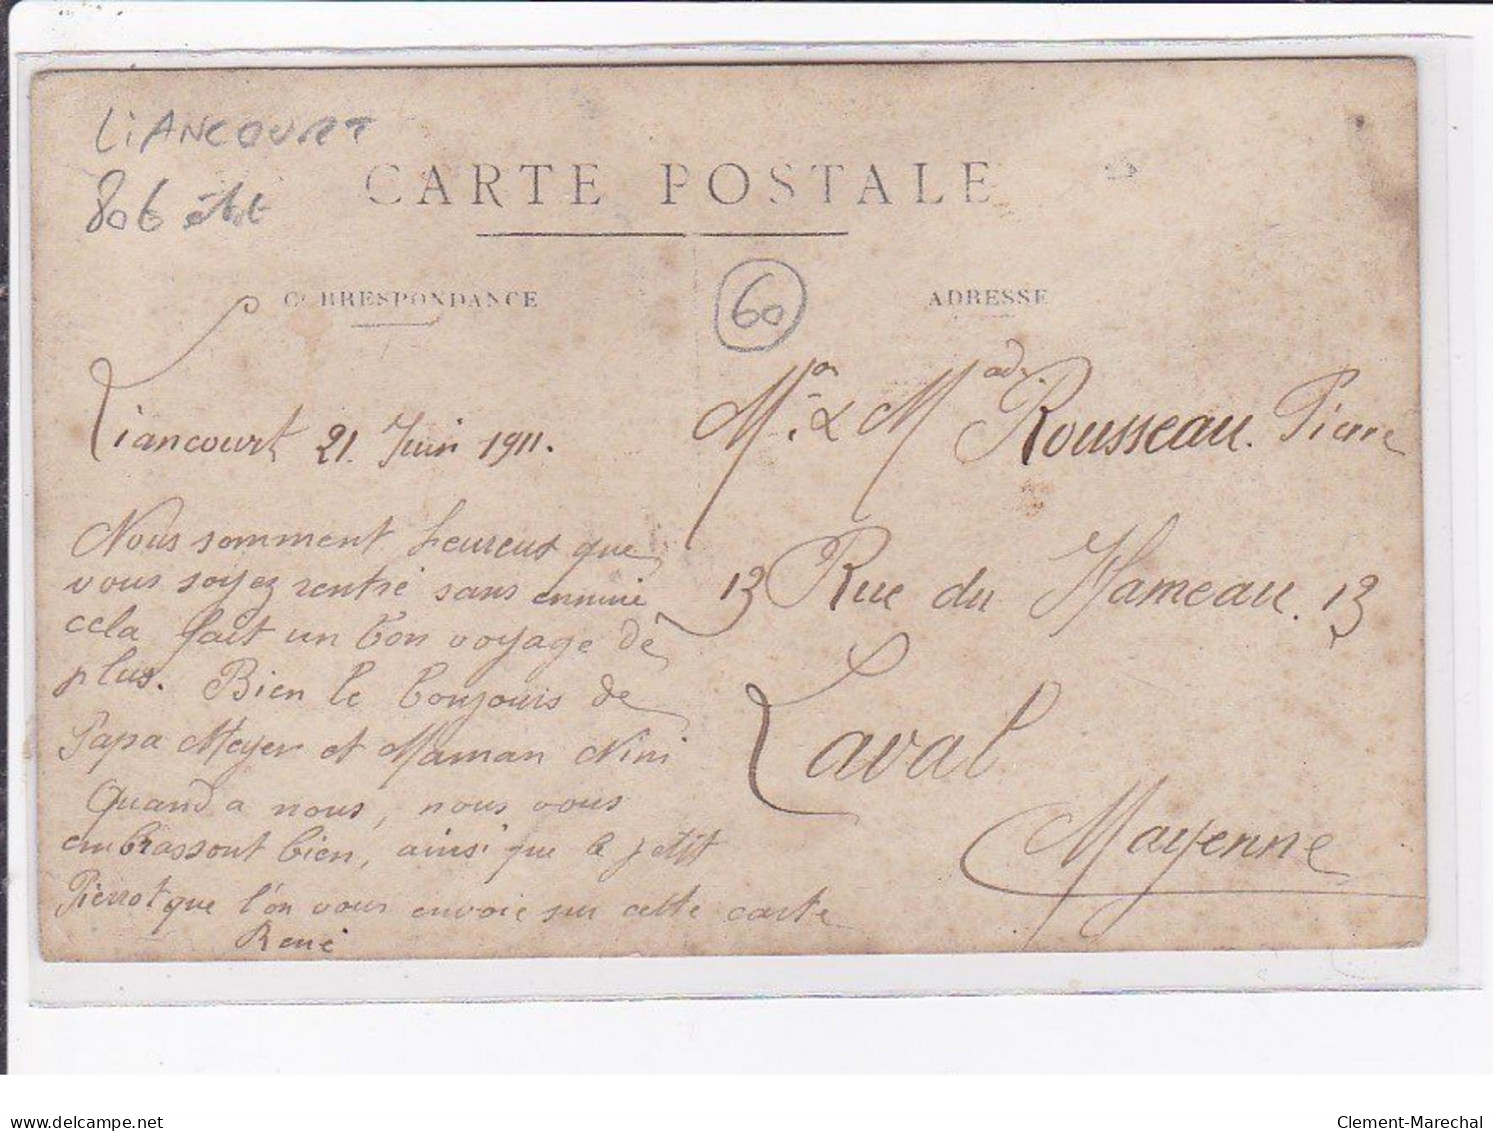 LIANCOURT
806
CARTE POSTALE
CORRESPONDANCE
60
ADRESSE
Liancourt 21 Juin 1911.
Nous somment heureux que
vous soyez rentré sans ennuie
cela fait un bon voyage de
plus. Bien le bonjours de
Papa Meyer et Maman Nini
Quand a nous, nous vous
embrassont bien, ainsi que le petit
Pierrot que l'on vous envoie sur cette carte
René
Mr. & Mad. Rousseau. Pierre
13 Rue du Hameau. 13
Laval
Mayenne
delcampe.net
Clement-Marechal